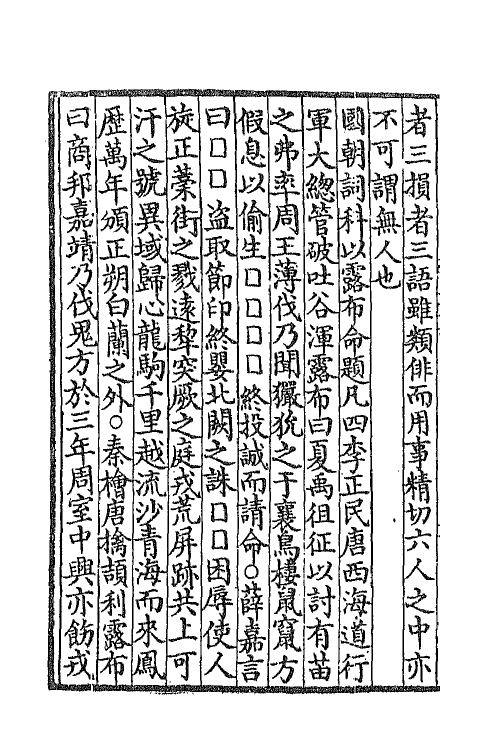 者三損者三語雖類俳而用事精切六人之中亦
不可謂無人也
國朝詞科以露布命題凡四李正民唐西海道行
軍大總管破吐谷渾露布曰夏禹徂征以討有苗
之弗率周王薄伐乃聞玁狁之于襄鳥棲鼠竄方
假息以偷生□□□□終投誠而請命○薛嘉言
曰□□□盜取節印終嬰北闕之誅□□困辱使人
旋正藁街之戮遠犂突厥之庭戎荒屏跡共上可
汗之號異域歸心龍駒千里越流沙青海而來鳳
歷萬年頒正朔白蘭之外○秦檜唐擒頡利露布
曰商邦嘉靖乃伐鬼方於三年周室中興亦飭戎